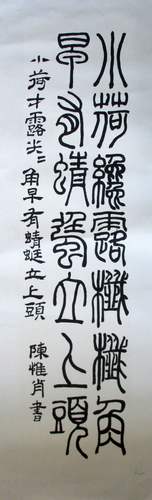 小荷纔露尖尖角
早有蜻蜓立上頭
小荷才露尖=角早有蜻蜓立上頭
陳惟肖書